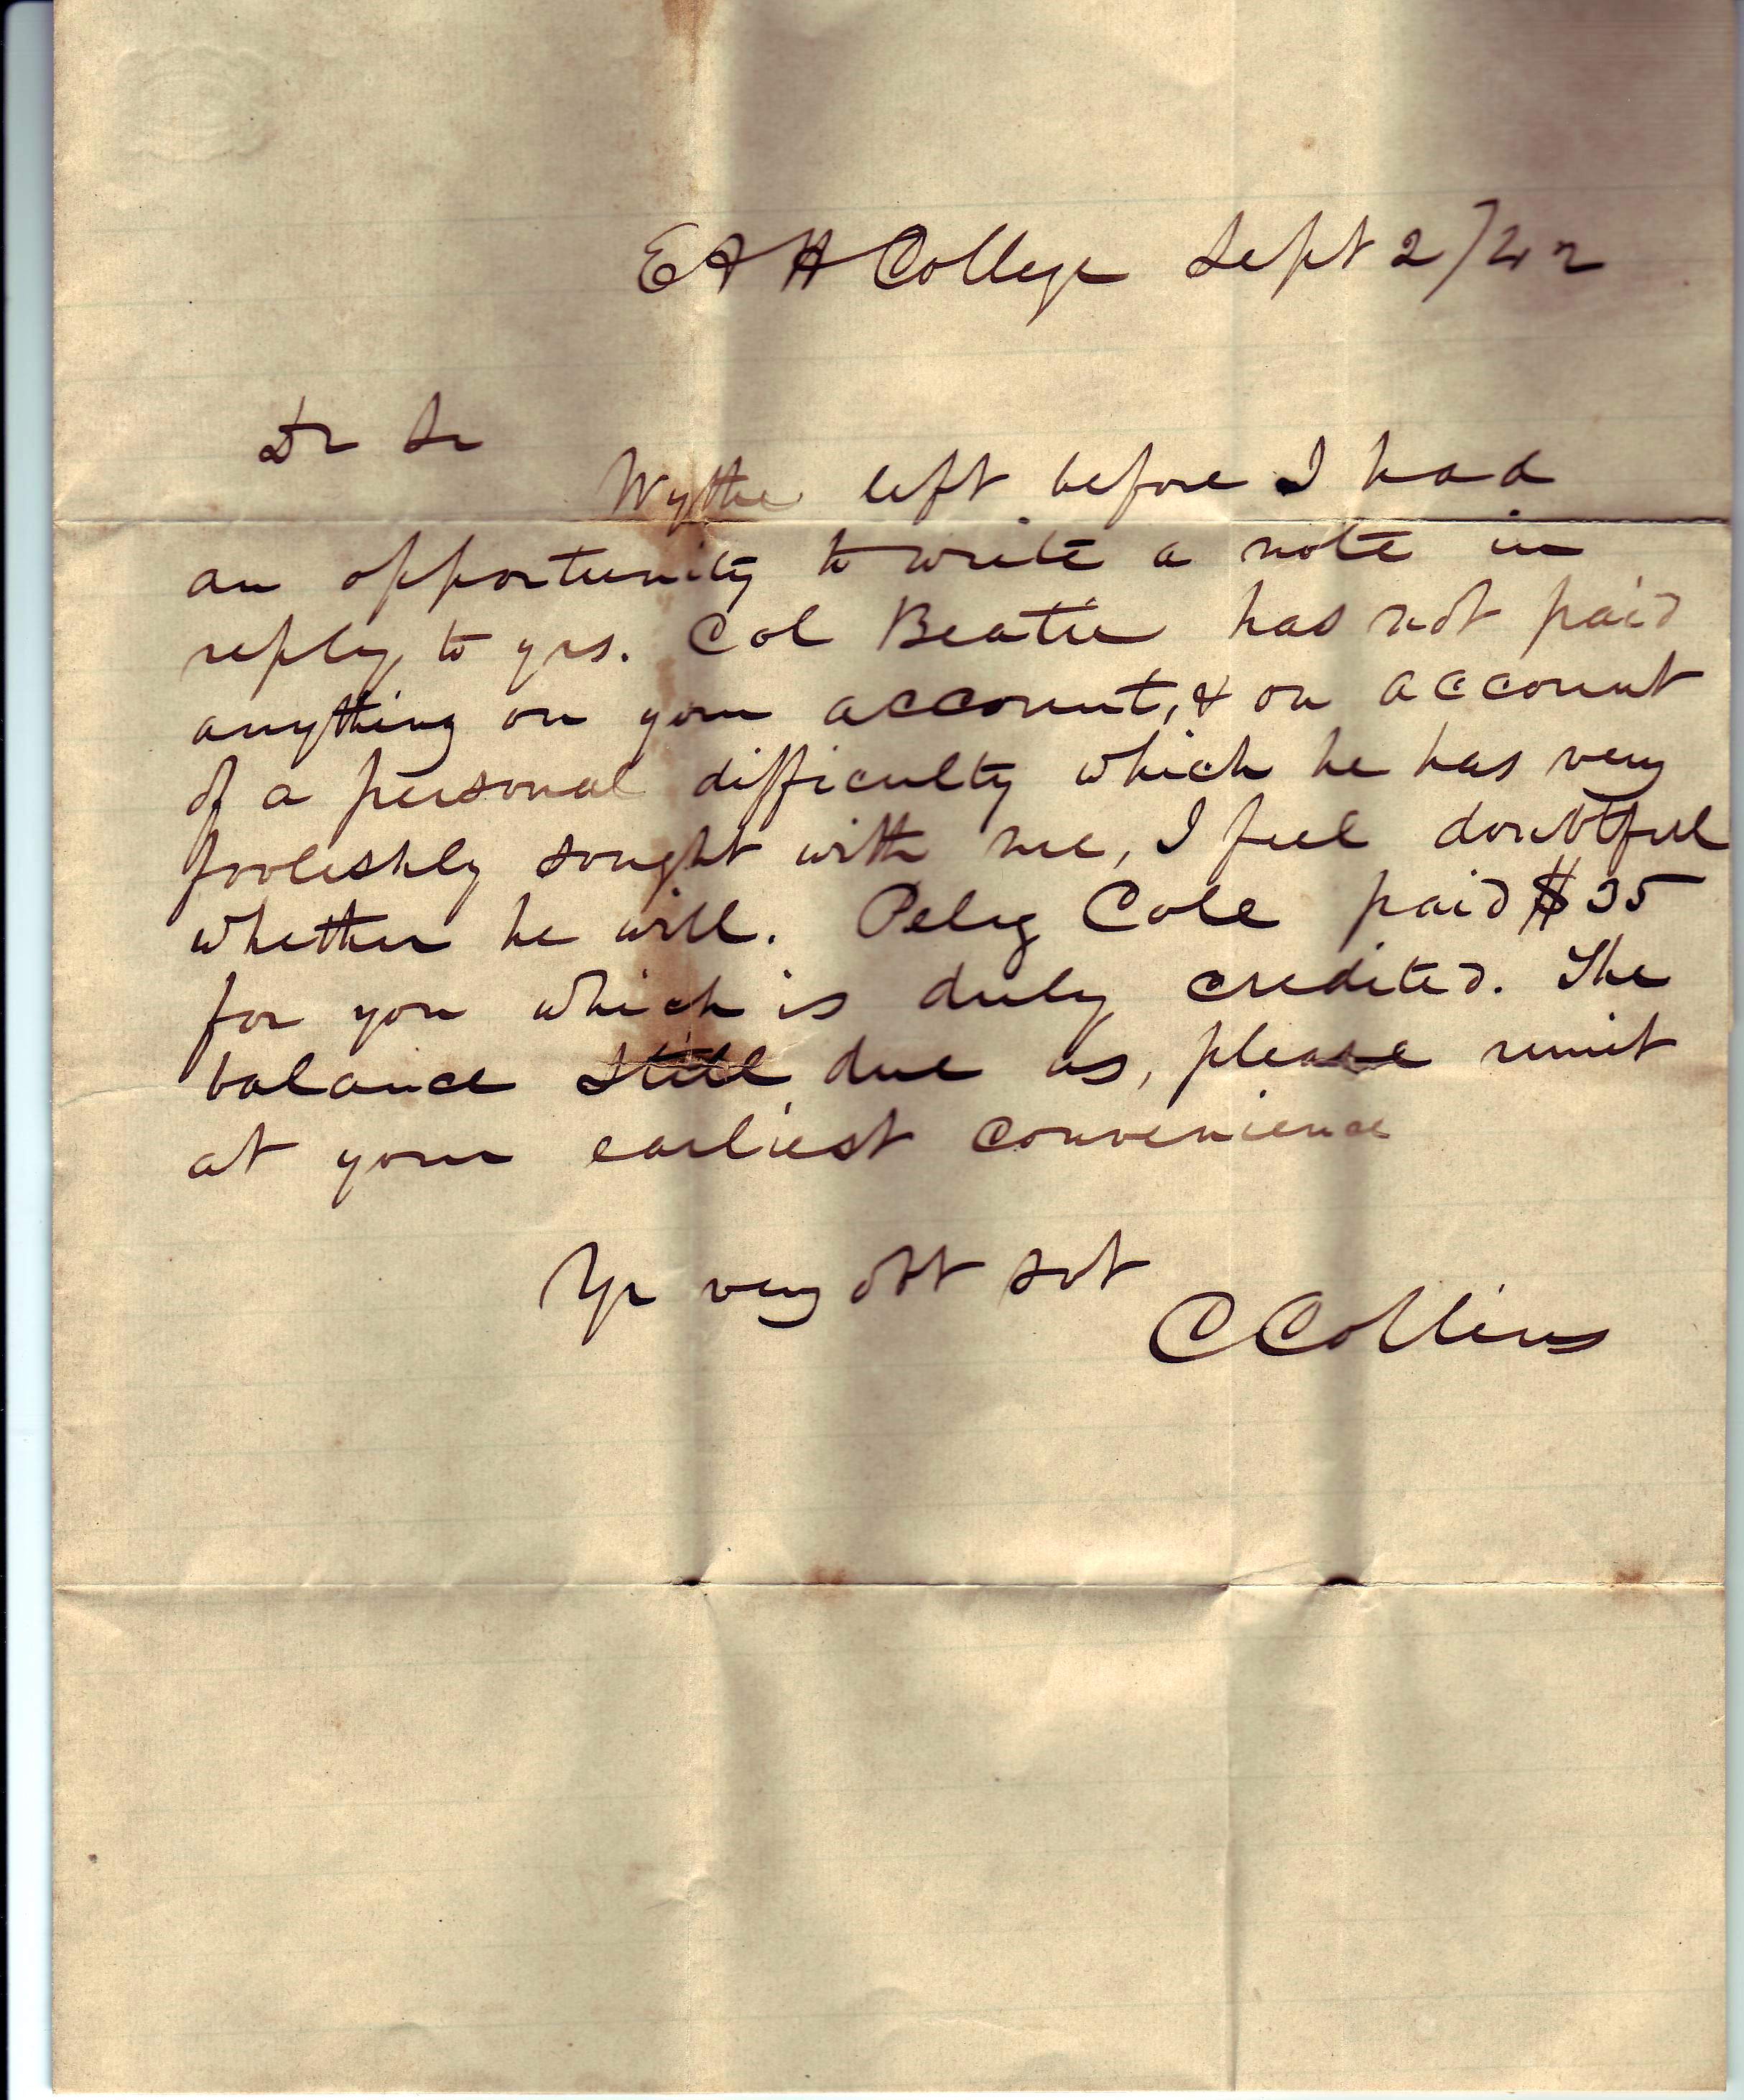 E & H College Sept 2/42
Dr Sr
Wythe left before I had
an opportunity to write a note in
reply to yrs. Col Beatie has not paid
anything on your account, & on account
of a personal difficulty which he has very
foolishly sought with me, I feel doubtful
whether he will. Peleg Cole paid $35
for you which is duly credited. The
balance still due us, please remit
at your earliest convenience
Yr very obt svt
C Collins